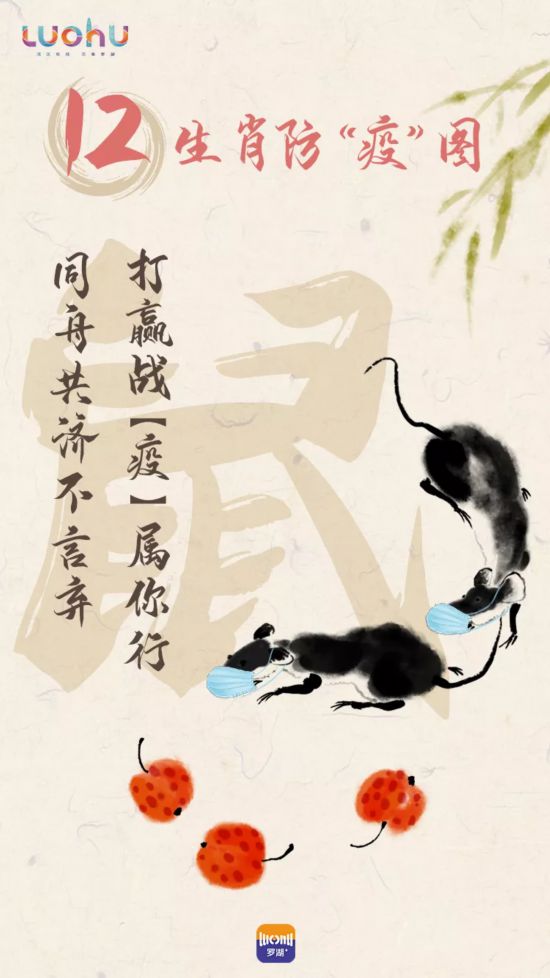 LUOHU
12生肖防“疫”图
打赢战【疫】属你行
同舟共济不言弃
鼠
LUOHU
罗湖+